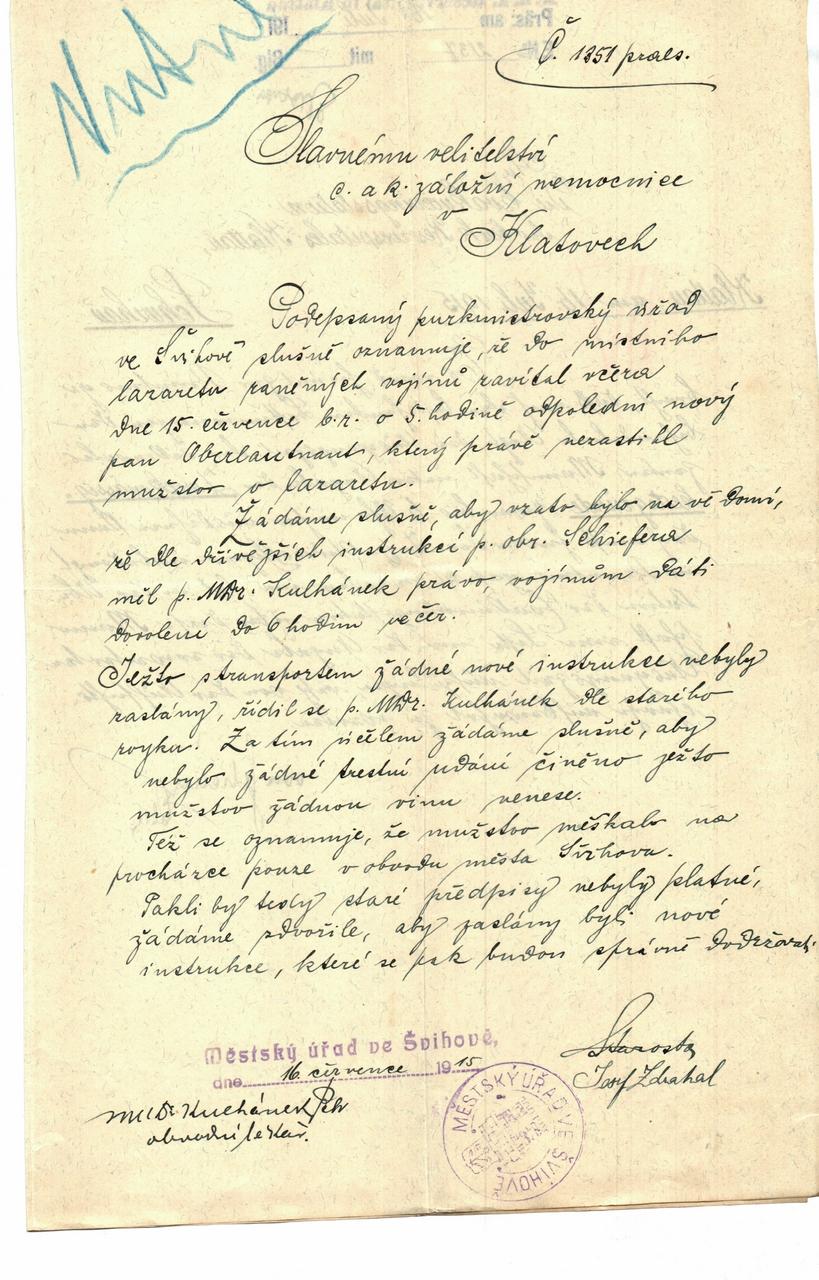 Nutné
Č. 1351 praes.
Slavnému velitelství
c. a k. záložní nemocnice
v
Klatovech
Podepsaný purkmistrovský úřad
ve Švihově slušně oznamuje, že do místního
lazaretu raněných vojínů zavítal včera
dne 15. července b.r. o 5. hodině odpolední nový
pan Oberlautnant, který právě nezastihl
mužstvo v lazaretu.
Žádáme slušně, aby vzato bylo na vědomí,
že dle dřívějších instrukcí p. obr. Schiefera
měl p. MDr. Kulhánek právo, vojínům dáti
dovolení do 6 hodin večer.
Ježto s transportem žádné nové instrukce nebyly
zaslány, řídil se p. MDr. Kulhánek dle starého
zvyku. Za tím účelem žádáme slušně, aby
nebylo žádné trestní udání činěno ježto
mužstvo žádnou vinu nenese.
Též se oznamuje, že mužstvo meškalo na
procházce pouze v obvodu města Švihova.
Pakli by tedy staré předpisy nebyly platné,
žádáme zdvořile, aby zaslány byli nové
instrukce, které se pak budou správně dodržovati.
Městský úřad ve Švihově,
dne 16. července 1915
Starosta
Josef Zdrahal
MUDr Kulhánek Petr
obvodní lékař.
MĚSTSKÝ ÚŘAD VE ŠVIHOVĚ